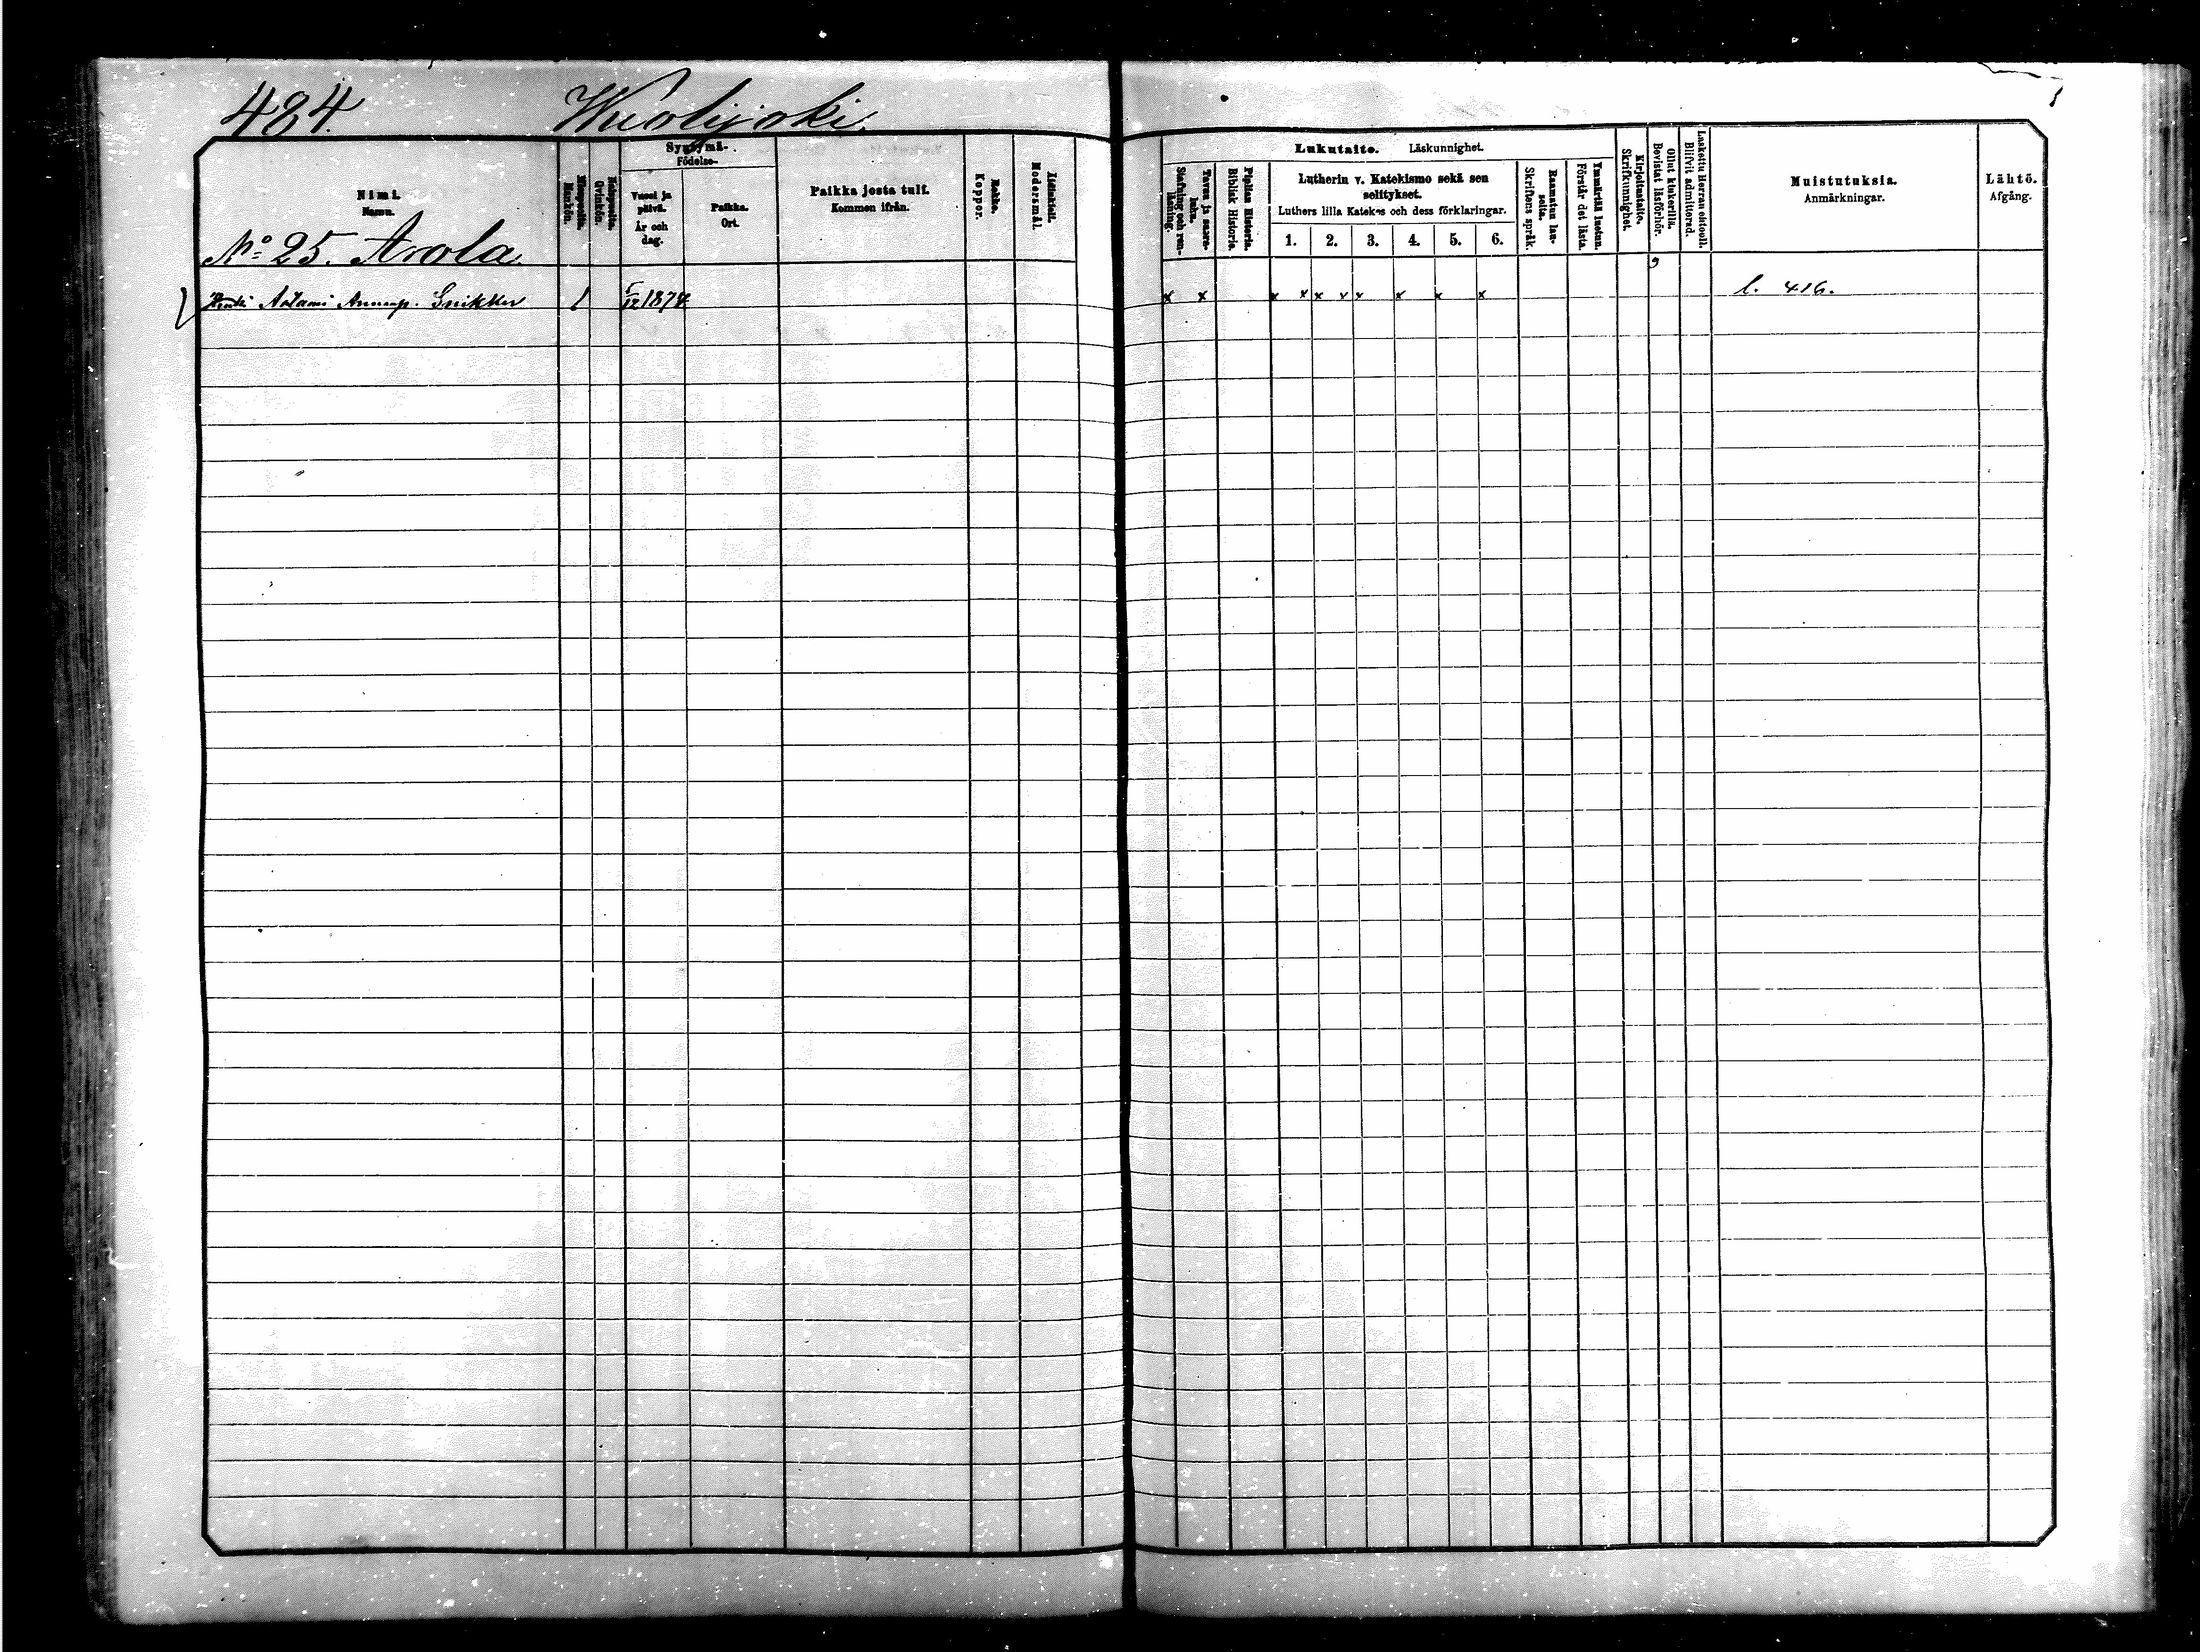 484. Wuolijoki.
Syntymä-
Födelse-
Nimi.
Namn.
Miespuolia.
Mankön.
Naispuolia.
Qvinkön.
Vuosi ja päivä.
År och dag.
Paikka.
Ort.
Paikka josta tult.
Kommen ifrån.
Rokko.
Koppor.
Äidinkieli.
Modersmål.
Nº 25. Arola.
Aatami Snikker 1 1874
Lukutaito. Läskunnighet.
Tavaa ja suora-luku.
Stafning och ren-läsning.
Piplian Historia.
Biblisk Historia.
Lutherin v. Katekismo sekä sen
selitykset.
Luthers lilla Katek:s och dess förklaringar.
1. 2. 3. 4. 5. 6.
Raamatun lau-seita.
Skriftens språk.
Ymmärtää luetun.
Förstår det lästa.
Kirjoitustaito.
Skrifkunnighet.
Ollut lukukerilla.
Bevistat läsförhör.
Laskettu Herran ehtooll.
Blifvit admitterad.
Muistutuksia.
Anmärkningar.
Lähtö.
Afgång.
x x x x x x x x x x l. 416.